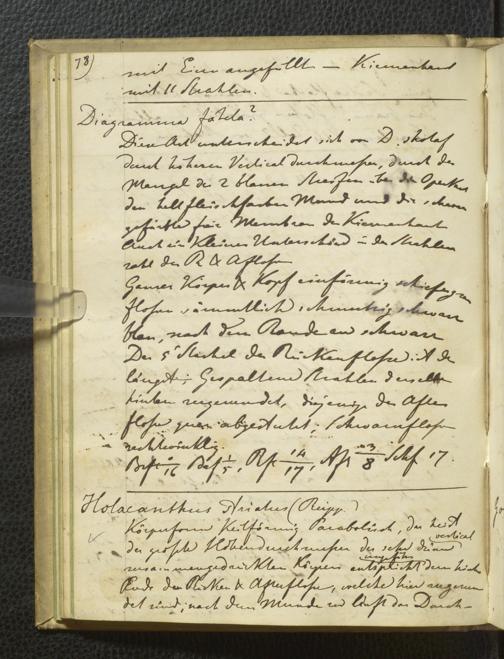 78)
mit Eiern angefüllt — Kiemenhaut
mit 11 Strahlen.
Diagramma fatela?
Diese Art unterscheidet sich von D. skotaf
durch höheren Verticaldurchmesser, durch den
Mangel der 2 blauen Streifen über die Operkel
den hellfleischfarben Mund und die schwarz
gefärbte freie Membran der Kiemenhaut
Auch ein kleiner Unterschied in der Strahlen
zahl der R & Afflosse
Ganzer Körper & Kopf einförmig schiefergrau
flossen sämmtlich schmutzig schwarz
blau, nach dem Rande zu schwarz
Der 5te Stachel der Rückenflosse ist der
längste; Gespaltene Strahlen derselben
hinten zugerundet, diejenige der After
flosse quer abgestutzt; Schwanzflosse
rechtwinklig.
Brfl 16 Bafl 1/5, Rfl 14/17, Afl 3/8 Schfl 17.
Holacanthus striatus (Rüpp.)
Körperform Keilförmig Parabolisch, das heist
der größte Höhendurchmesser des sehr dünn vertical
zusammengedrückten Körpers entspricht ungefähr dem hinteren
Rande der Rücken & Afterflosse, welche hier zugerun
det sind; nach dem Munde zu läuft das Durch-